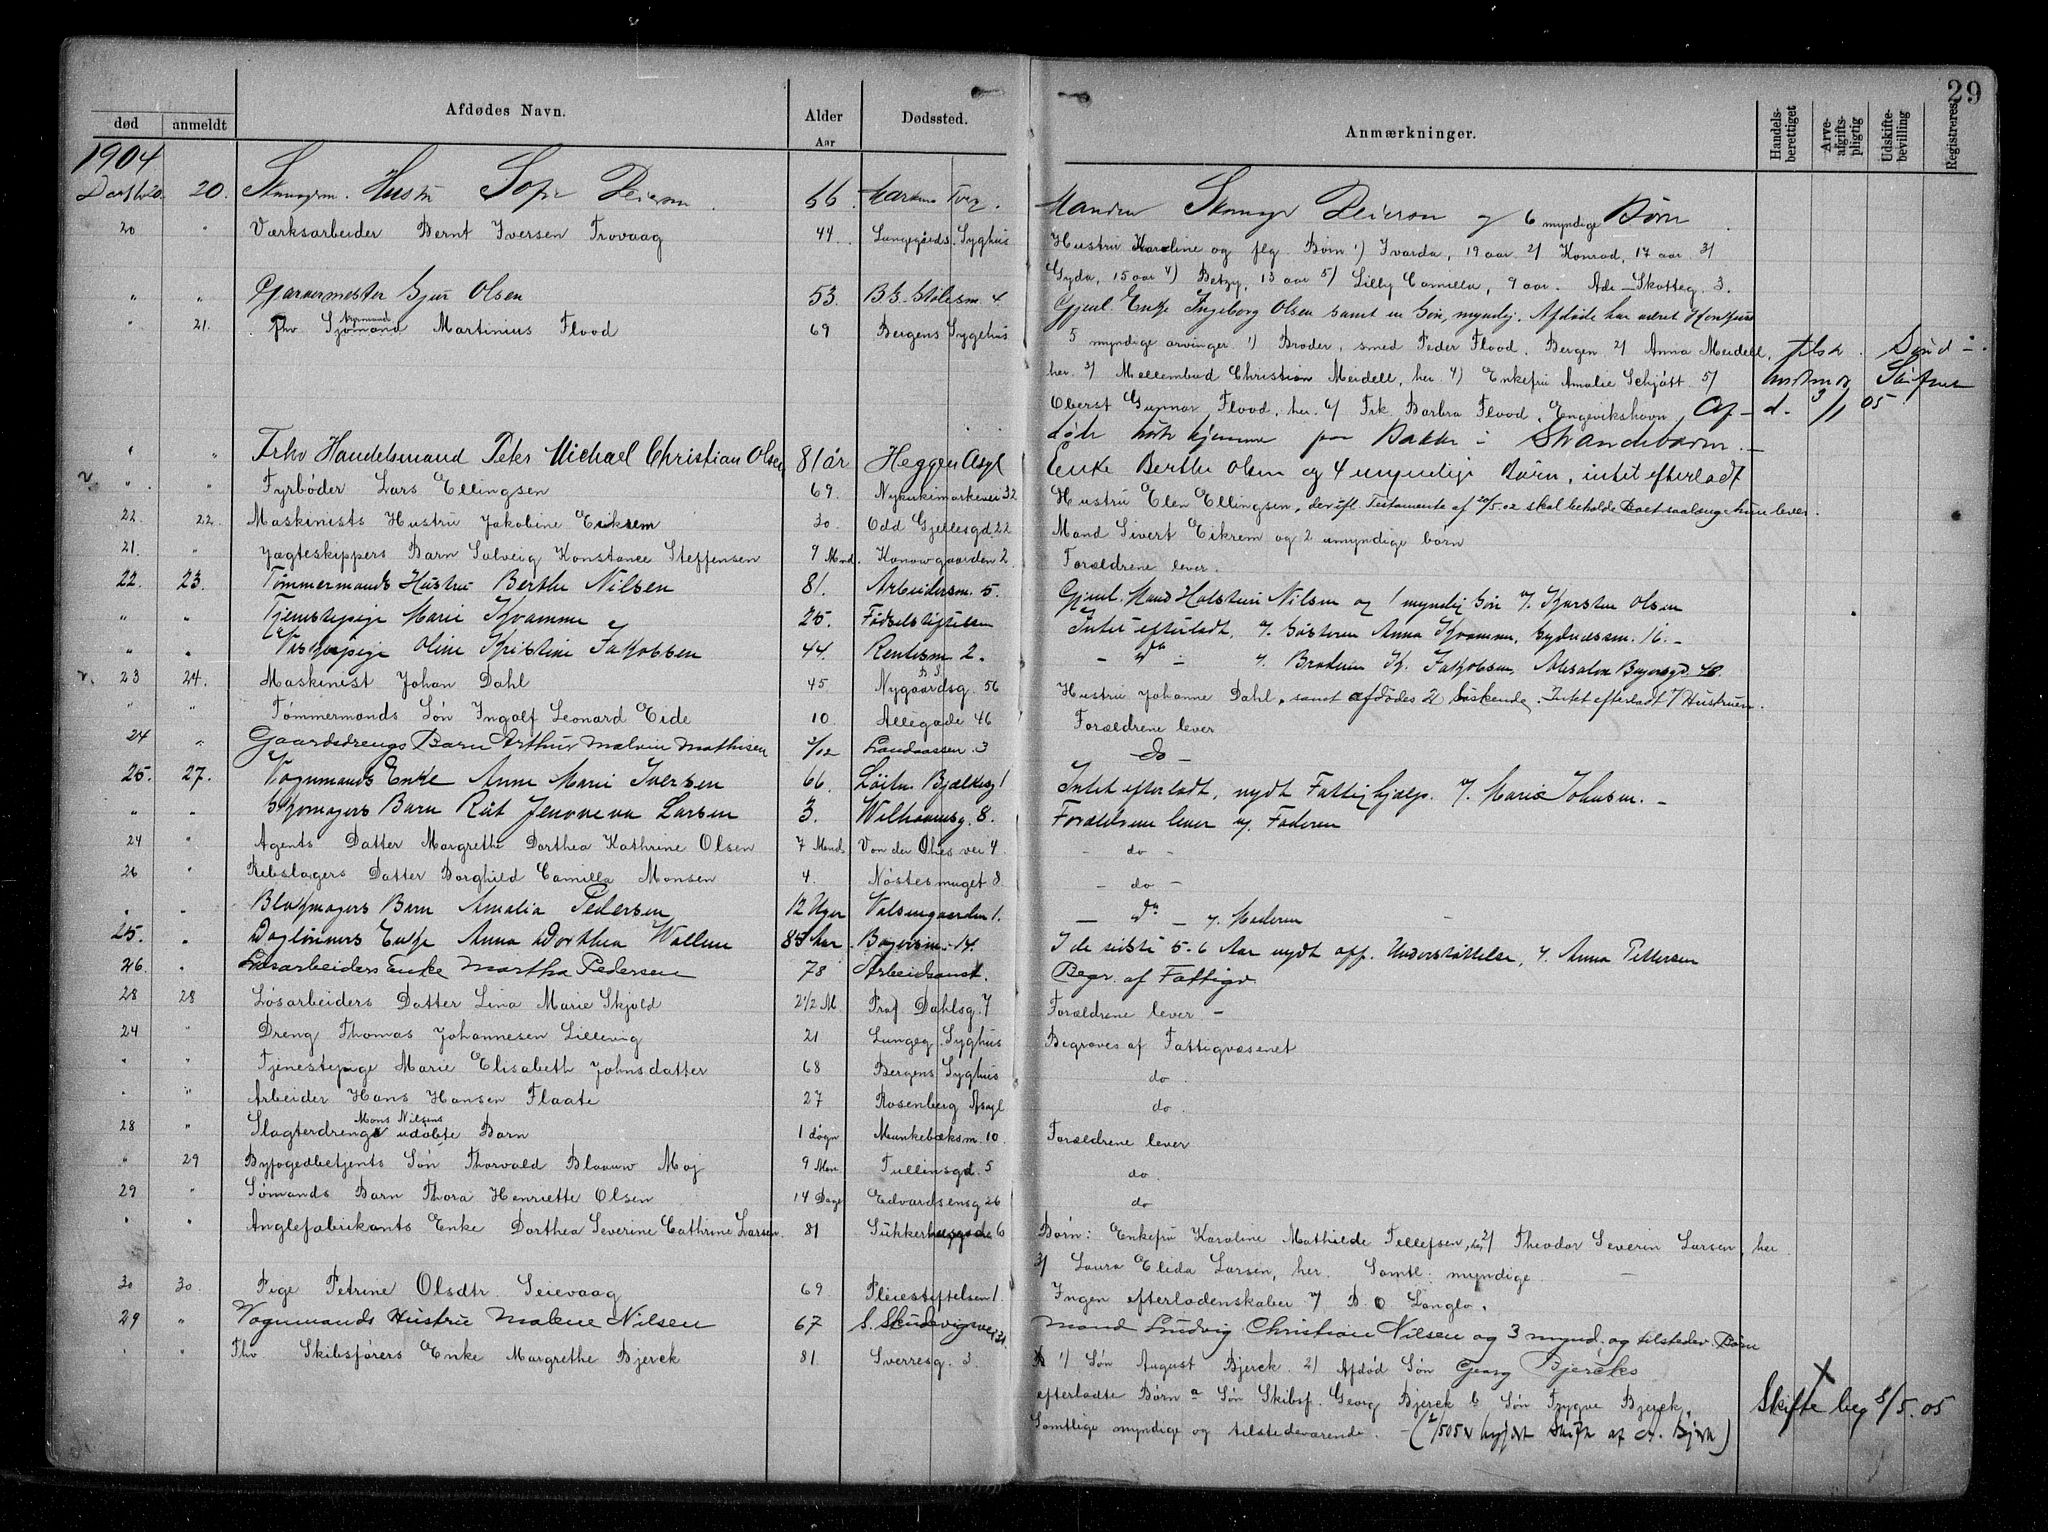 29
død anmeldt Afdødes Navn. Alder Aar Dødssted. Anmærkninger. Handelsberettiget Arveafgiftspligtig Udskiftebevilling Registreres
1904
20. Hustru Sofie 66. Manden 6 myndige Børn.
20 " Værksarbeider Bernt Iversen Trovaag 44. Lungegaards. Syghus Hustru Karoline og flg. Børn 1) Ivarda, 19 aar 2) Konrad, 17 aar 3)
Gyda, 15 aar 4) Betzy, 13 aar 5) Lilly Camilla, 9 aar.
" " Garvermester Sjur Olsen 53. 4. Gjenl. Enke Ingeborg Olsen samt en Søn, myndig. Afdøde har været
" 21. Fhv Sjømand Martinius Flood 69 Bergens Sygehus 5 myndige arvinger. 1) Broder, smed Peder Flood, Bergen 2) Anna Meidell,
her. 3) Christian Meidell, her. 4) Enkefru Amalie Schjøtt 5)
Oberst Gunnar Flood, her. 6) Frk. Barbra Flood, Engevikshavn, Af- d. 3/1 05.
døde hørte hjemme paa Bakke i Strandebarm.
" " Fhv Handelsmand Peter Michael Christian Olsen 81 år Heggen Asyl Enke Berthe Olsen og 4 umyndige Børn, intet efterladt
" " Fyrbøder Lars Ellingsen 69. 32 Hustru Elen Ellingsen, der ifl. Testamente af 20/5.02 skal beholde Boet saalænge hun lever.
22. 22. Maskinists Hustru Jakobine Eikrem 30. Odd Gjellesgd. 22 Mand Sivert Eikrem og 2 umyndige børn
21. " Jægteskippers Barn Solveig Konstance Steffensen 9 Mnd. Kanowgaarden 2. Forældrene lever.
22. 23. Tømmermands Hustru Berthe Nilsen 81. Arbeidersm. 5. Gjenl. Mand Halstein Nilsen og 1 myndig Søn v. Karsten Olsen
" " Tjenstepige Marie Kvamme 25. Fødselstiftelsen Intet efterladt, v. Søsteren Anna Kvamme, Sydnessm. 16.
" " Oline Kristine Jakobsen 44. Rentesm. 2. - do - v. Broderen K. Jakobsen, Absalon Beyersgd 48.
23 24. Maskinist Johan Dahl 45 Nygaardsg. 56 Hustru Johanne Dahl, samt afdødes 2 Søskende. Intet efterladt v Hustruen.
" " Tømmermands Søn Ingolf Leonard Eide 10 Allégade 46 Forældrene lever
24 " Gaardsdrengs Barn Arthur Malvin Mathisen 3/12 Landaassen 3 do -
25. 27. Vognmands Enke Anne Marie Iversen 66. 1 Intet efterladt, nydt Fattighjælp. v. Marie Johnsen.
" " Skomagers Barn Rut Jenoveva Larsen 3. Welhavensg. 8. Forældrene lever v. Faderen
24 " Agents Datter Margrethe Dorthea Kathrine Olsen 7 Mnd Von der Ohes vei 4. - do -
26 " Rebslagers Datter Borghild Camilla Monsen 4. Nøstesmuget 8. - do -
" " Blokmagers Barn Amalia Pedersen 12 Uger 1. - do - v. Moderen
25. " Daglønners Enke Anna Dorthea Wallem 85 Aar 14. I de sidste 5-6 Aar nydt off. Understøttelse, v. Anna Pettersen
26. " Løsarbeiders Enke Martha Pedersen 78 Arbeidsanst. Begr. af Fattigv.
28 28 Løsarbeiders Datter Lina Marie Skjold 2 1/2 M Prof Dahlsg. 7 Forældrene lever -
24 " Dreng Thomas Johannesen Lillevig 21 Lungeg. Syghus Begraves af Fattigvæsenet
" " Tjenestepige Marie Elisabeth Johnsdatter 68 Bergens Syghus do.
" " Arbeider Hans Hansen Flaate 27 Rosenberg Asyl do.
28 " Slagterdreng Mons Nilsens udøbte Barn 1 døgn Munkebæksm. 10. Forældrene lever
" 29 Byfogedbetjents Søn Thorvald Blaauw Moj 9 Mdn. Tullinsgd. 5 do.
29 " Sømands Barn Thora Henriette Olsen 14 Dage Edvardsensg 26 do
" " Anglefabrikants Enke Dorthea Severine Cathrine Larsen. 81 6 Børn: Enkefru Karoline Mathilde Tellefsen, her, 2) Theodor Severin Larsen, her
3) Laura Elida Larsen, her. Samtl. myndige.
30 30 Pige Petrine Olsdtr. Seievaag 69 Pleiestiftelsen 1. Ingen efterladenskaber v. B. O Langlo.
29 " Vognmands Hustru Malene Nilsen 67 Mand Ludvig Christian Nilsen og 3 mynd. og tilstedev. Børn
" " Fhv Skibsførers Enke Margrethe Bjerck 81 Sverresg. 3. B 1) Søn August Bjerck. 2) Afdød Søn Georg Bjercks
efterladte Børn a Søn Skibsf. Georg Bjerck b Søn Trygve Bjerck. Skifte beg 8/5.05
Samtlige myndige og tilstedeværende.